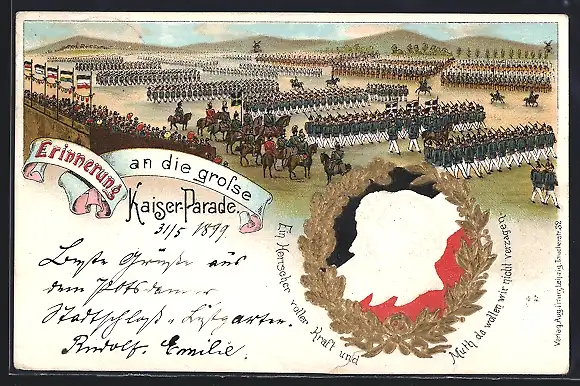 Erinnerung
an die große
Kaiser-Parade.
31/5 1899.
Beste Grüße aus
dem Potsdamer
Stadtschloß u Lustgarten.
Rudolf. Emilie.
Ein Herrscher voller Kraft und Muth da wollen wir nicht verzagen.
Verlag Aug.
Leipzig,
32